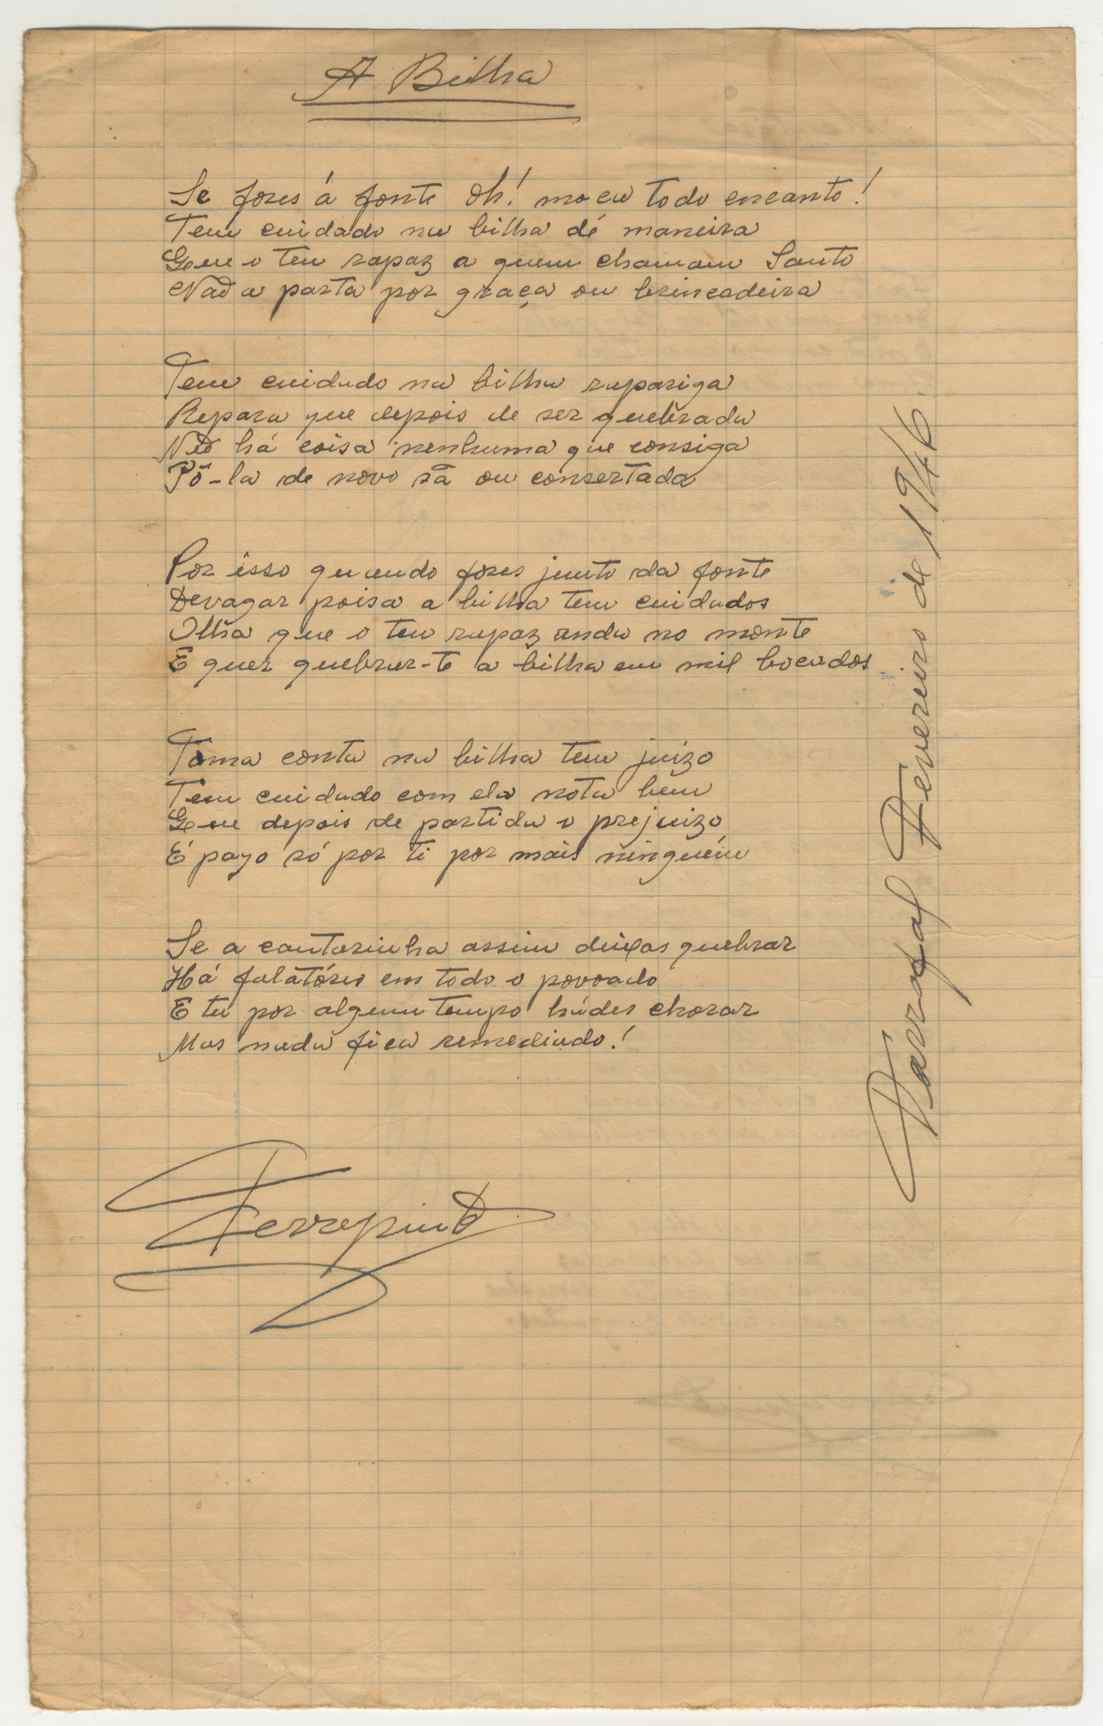 A Bilha
Se fores á fonte Oh! moça todo encanto!
Tem cuidado na bilha de maneira
Que o teu rapaz a quem chamam Santo
Não a parta por graça ou brincadeira
Tem cuidado na bilha rapariga
Repara que depois de ser quebrada
Não há coisa nenhuma que consiga
Pô-la de novo sã ou consertada
Por isso quando fores junto da fonte
Devagar poisa a bilha tem cuidados
Olha que o teu rapaz anda no monte
E quer quebrar-te a bilha em mil bocados
Toma conta na bilha tem juízo
Tem cuidado com ela nota bem
Que depois de partida o prejuizo
É pago só por ti por mais ninguém
Se a cantarinha assim deixas quebrar
Há falatório em todo o povoado
E tu por algum tempo hádes chorar
Mas nada fica remediado!
Ferrapinto
Tarrafal Fevereiro de 1946